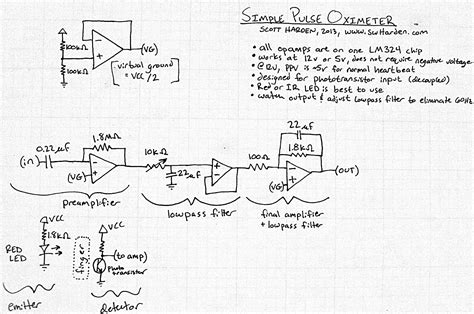 SIMPLE PULSE OXIMETER
SCOTT HARDEN, 2013, www.SWHarden.com
• all opamps are on one LM324 chip
• works at 12v or 5v, does not require negative voltage
• @12v, PPV is ~5v for normal heartbeat
• designed for phototransistor input (decoupled)
• Red or IR LED is best to use
• watch output & adjust lowpass filter to eliminate 60Hz
100kΩ
100kΩ
(VG)
virtual ground
= VCC/2
22uF
1.8MΩ
1.8kΩ
0.22uF
10kΩ
100Ω
(in)
(OUT)
22uF
(VG)
(VG)
preamplifier
lowpass filter
final amplifier
+ lowpass filter
VCC
VCC
1.8kΩ
(to amp)
RED
LED
finger
Photo
transistor
emitter
detector